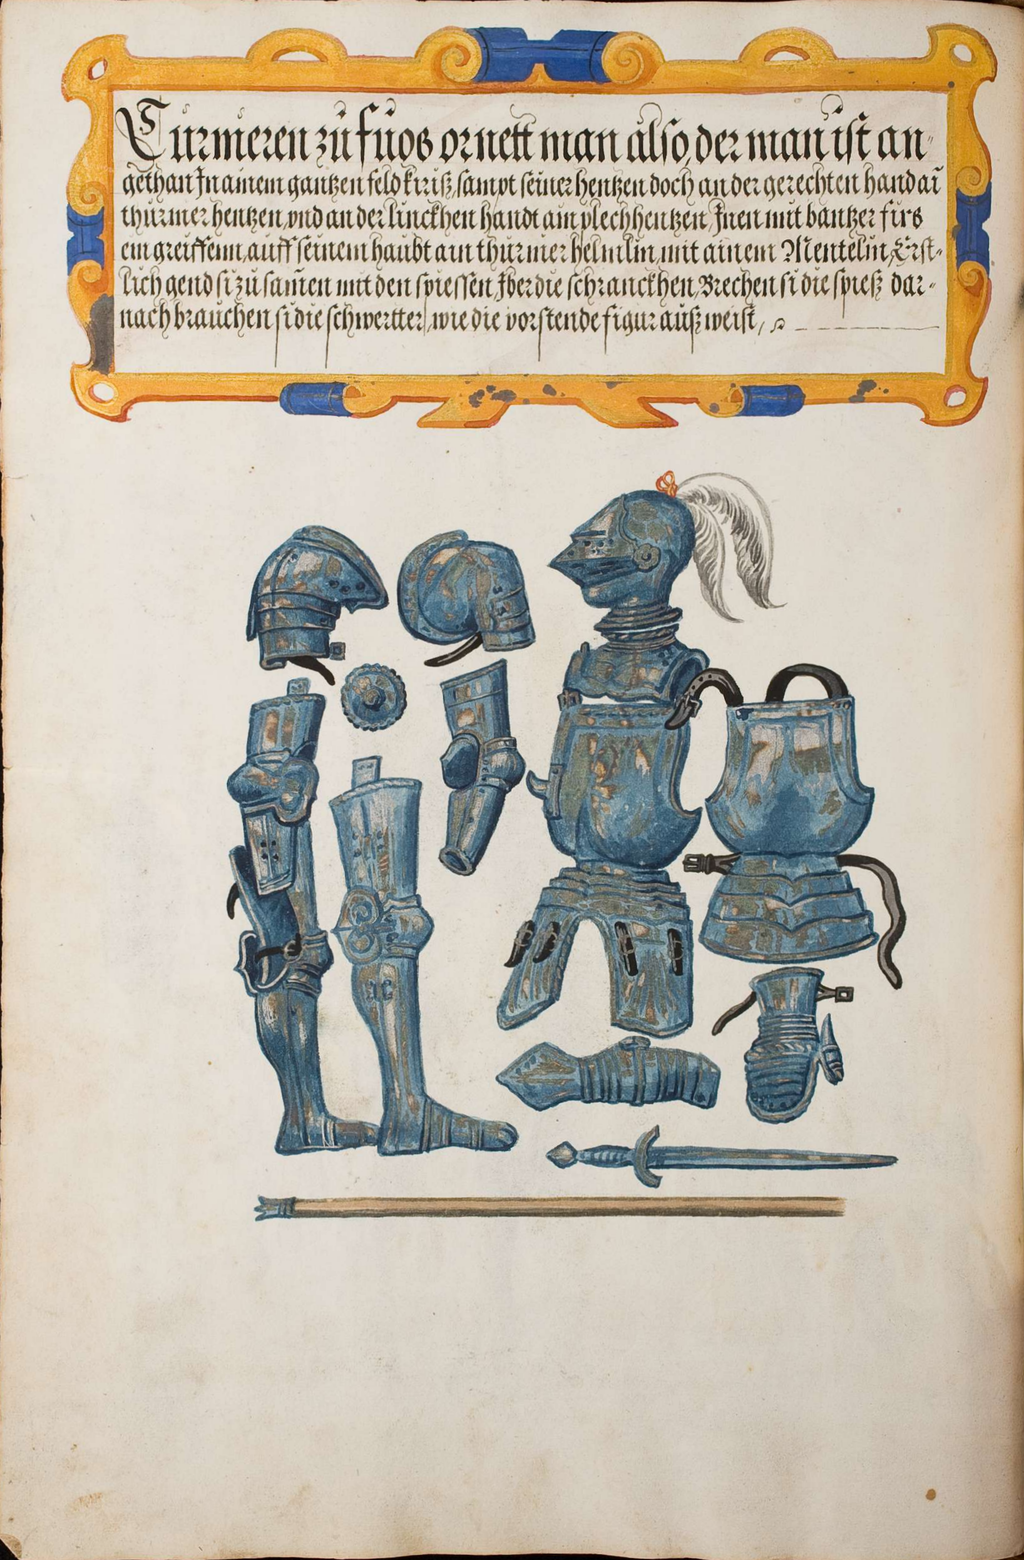 Turnieren zü fuos ornett man also, der man ist an-
gethan In ainem gantzen feld kiriß, sampt seiner hentzen doch an der gerechten hand ai
thurnier hentzen, vnd an der linckhen handt ain plechhentzen, Inen mit bantzer firs
ein greiffenn, auff seinem haubt ain thurnier helmlin, mit ainem Mentelin, Erst-
lich gend si zu samen mit den spiessen, Iber die schranckhen, Brechen si die spieß dar-
nach brauchen si die schwertter, wie die vorstende figur außweist,